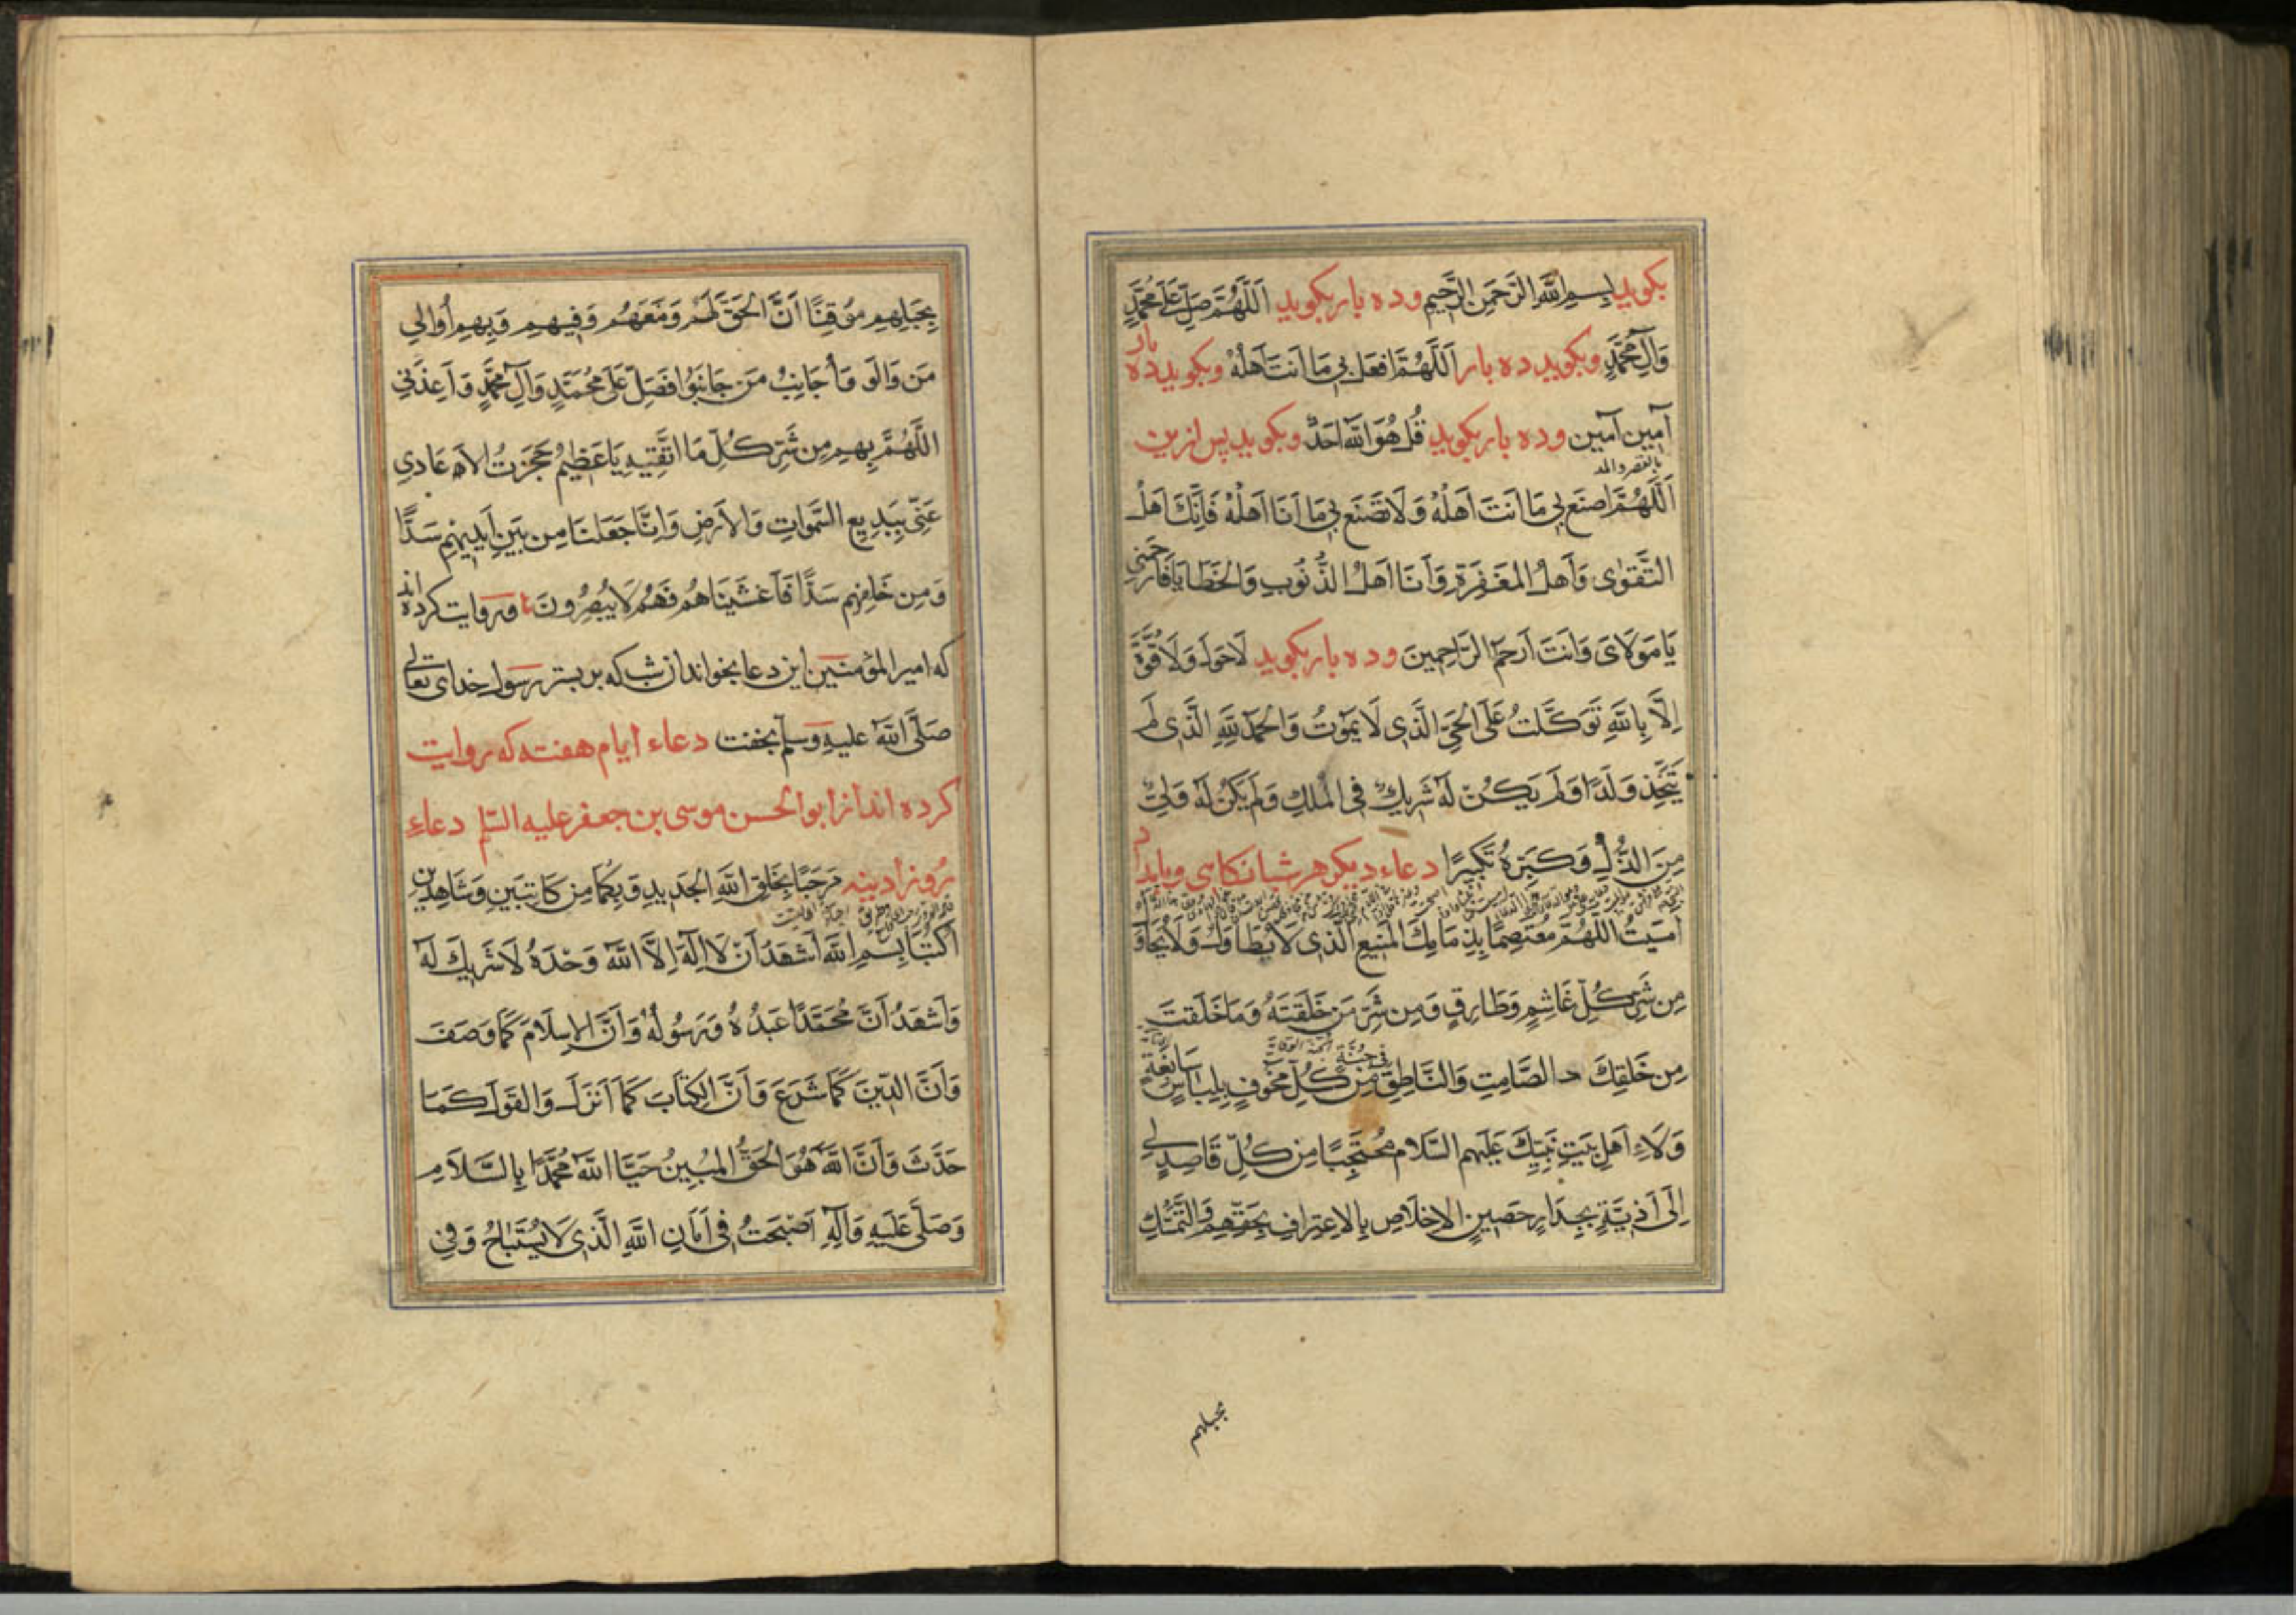 بكويد بِسمِ اللَّهِ الرَّحمَنِ الرَّحِيمِ و ده بار بكويد اَللَّهُمَّ صَلِّ عَلَى مُحَمَّدٍ
وَآلِ مُحَمَّدٍ وبكويد ده بار اَللَّهُمَّ افعَل بِي مَا اَنتَ اَهلُهُ وبكويد ده بار
آمين آمين و ده بار بكويد قُل هُوَ اللَّهُ اَحَدٌ وبكويد پس ازين
بالقصر والمد
اَللَّهُمَّ اصنَع بِي مَا اَنتَ اَهلُهُ وَلَا تَصنَع بِي مَا اَنَا اَهلُهُ فَاِنَّكَ اَهلُ
التَّقوٰى وَاَهلُ المَغفِرَةِ وَاَنَا اَهلُ الذُّنُوبِ وَالخَطَايَا فَارحَمنِي
يَا مَولَاىَ وَاَنتَ اَرحَمُ الرَّاحِمِينَ و ده بار بكويد لَا حَولَ وَلَا قُوَّةَ
اِلَّا بِاللَّهِ تَوَكَّلتُ عَلَى الحَيِّ الَّذِي لَا يَمُوتُ وَالحَمدُ لِلَّهِ الَّذِى لَم
يَتَّخِذ وَلَدًا وَلَم يَكُن لَهُ شَرِيكٌ فِي المُلكِ وَلَم يَكُن لَهُ وَلِيٌّ
مِنَ الذُّلِّ وَكَبِّرهُ تَكبِيرًا دعاء ديكر هر شبانكاهى وبامداد
اَمسَيتُ اللَّهُمَّ مُعتَصِمًا بِذِمَامِكَ المَنِيعِ الَّذِى لَا يُطَاوَلُ وَلَا يُحَاوَلُ
مِن شَرِّ كُلِّ غَاشِمٍ وَطَارِقٍ وَمِن شَرِّ مَن خَلَقتَهُ وَمَا خَلَقتَ
مِن خَلقِكَ الصَّامِتِ وَالنَّاطِقِ فِي جُنَّةٍ مِن كُلِّ مَخُوفٍ بِلِبَاسٍ سَابِغَةٍ
وَلَاءِ اَهلِ بَيتِ نَبِيِّكَ عَلَيهِمِ السَّلَام مُحتَجِبًا مِن كُلِّ قَاصِدٍ لِي
اِلَى اَذِيَّةٍ بِجِدَارٍ حَصِينِ الاِخلَاصِ بِالاِعتِرَافِ بِحَقِّهِم وَالتَّمَسُّكِ
بحبلهم
بِحَبلِهِم مُوقِنًا اَنَّ الحَقَّ لَهُم وَمَعَهُم وَفِيهِم وَبِهِم اُوَالِي
مَن وَالَو وَاُجَانِبُ مَن جَانَبُوا فَصَلِّ عَلَى مُحَمَّدٍ وَآلِ مُحَمَّدٍ وَاَعِذنِي
اللَّهُمَّ بِهِم مِن شَرِّ كُلِّ مَا اتَّقِيهِ يَا عَظِيمُ حَجَزتُ الاَعَادِي
عَنِّي بِبَدِيعِ السَّمٰوَاتِ وَالاَرضِ وَاِنَّا جَعَلنَا مِن بَينِ اَيدِيهِم سَدًّا
وَمِن خَلفِهِم سَدًّا فَاَغشَينَاهُم فَهُم لَا يُبصِرُونَ وروايت كرده اند
كه امير المؤمنين اين دعا بخواند ان شب كه بر بستر رسول خداى تعالى
صَلَّى اللَّهُ عليه وسلم بخفت دعاء ايام هفته كه روايت
كرده اند از ابو الحسن موسى بن جعفر عليه السلم دعاءِ
روز ادينه مَرحَبًا بِخَلقِ اللَّهِ الجَدِيدِ وَبِكُمَا مِن كَاتِبَينِ وَشَاهِدَينِ
اُكتُبَا بِسمِ اللَّهِ اَشهَدُ اَن لَا اِلٰهَ اِلَّا اللَّهُ وَحدَهُ لَا شَرِيكَ لَهُ
وَاَشهَدُ اَنَّ مُحَمَّدًا عَبدُهُ وَرَسُولُهُ وَاَنَّ الاِسلَامَ كَمَا وَصَفَ
وَاَنَّ الدِّينَ كَمَا شَرَعَ وَاَنَّ الكِتَابَ كَمَا اَنزَلَ وَالقَولَ كَمَا
حَدَّثَ وَاَنَّ اللَّهَ هُوَ الحَقُّ المُبِينُ حَيَّا اللَّهُ مُحَمَّدًا بِالسَّلَامِ
وَصَلَّى عَلَيهِ وَآلِهِ اَصبَحتُ فِي اَمَانِ اللَّهِ الَّذِى لَا يُستَبَاحُ وَفِي